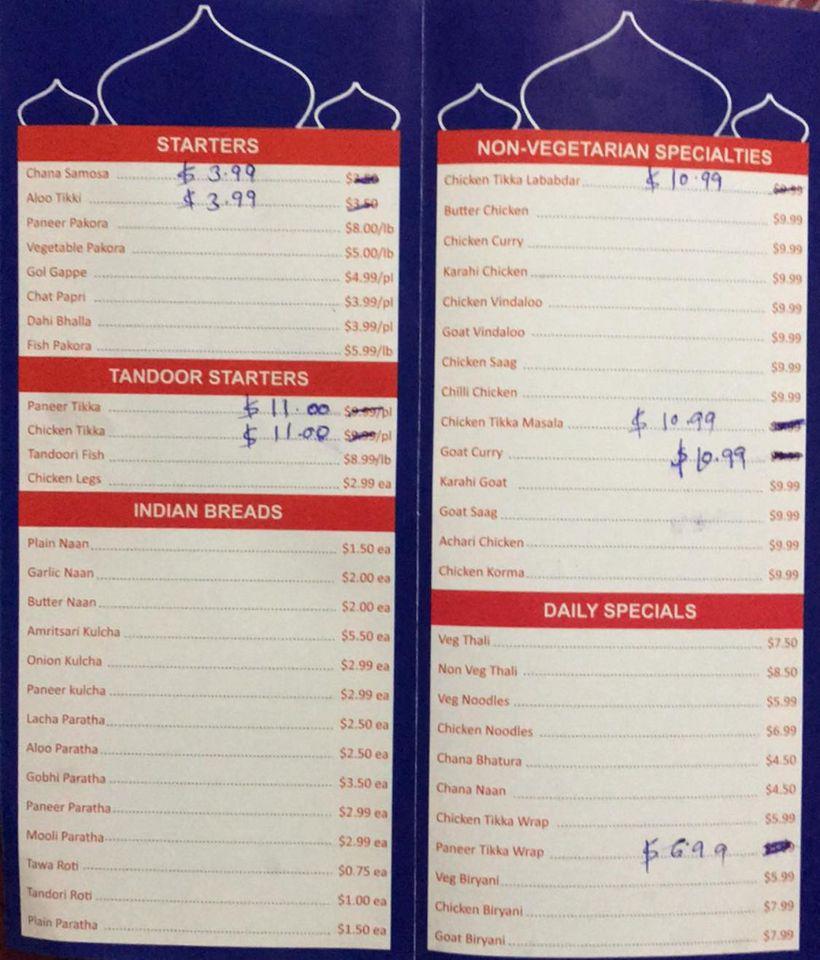 STARTERS
Chana Samosa $3.99
Aloo Tikki $3.99 $3.50
Paneer Pakora $8.00/lb
Vegetable Pakora $5.00/lb
Gol Gappe $4.99/pl
Chat Papri $3.99/pl
Dahi Bhalla $3.99/pl
Fish Pakora $5.99/lb
TANDOOR STARTERS
Paneer Tikka $11.00 $9.99/pl
Chicken Tikka $11.00 $9.99/pl
Tandoori Fish $8.99/lb
Chicken Legs $2.99 ea
INDIAN BREADS
Plain Naan $1.50 ea
Garlic Naan $2.00 ea
Butter Naan $2.00 ea
Amritsari Kulcha $5.50 ea
Onion Kulcha $2.99 ea
Paneer kulcha $2.99 ea
Lacha Paratha $2.50 ea
Aloo Paratha $2.50 ea
Gobhi Paratha $3.50 ea
Paneer Paratha $2.99 ea
Mooli Paratha $2.99 ea
Tawa Roti $0.75 ea
Tandori Roti $1.00 ea
Plain Paratha $1.50 ea
NON-VEGETARIAN SPECIALTIES
Chicken Tikka Lababdar $10.99
Butter Chicken $9.99
Chicken Curry $9.99
Karahi Chicken $9.99
Chicken Vindaloo $9.99
Goat Vindaloo $9.99
Chicken Saag $9.99
Chilli Chicken $9.99
Chicken Tikka Masala $10.99
Goat Curry $10.99
Karahi Goat $9.99
Goat Saag $9.99
Achari Chicken $9.99
Chicken Korma $9.99
DAILY SPECIALS
Veg Thali $7.50
Non Veg Thali $8.50
Veg Noodles $5.99
Chicken Noodles $6.99
Chana Bhatura $4.50
Chana Naan $4.50
Chicken Tikka Wrap $5.99
Paneer Tikka Wrap $6.99
Veg Biryani $5.99
Chicken Biryani $7.99
Goat Biryani $7.99